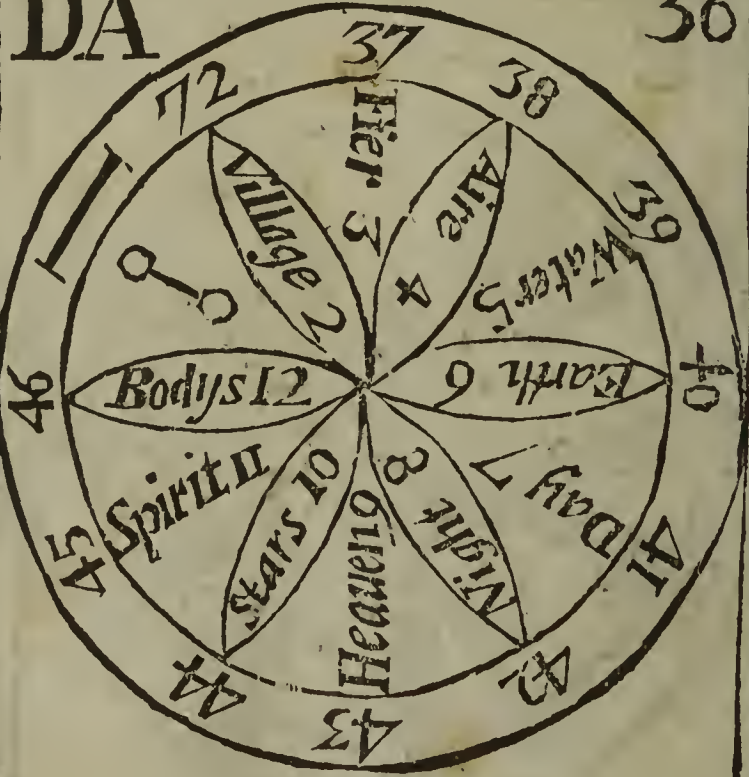 DA
36
37
38
39
40
41
42
43
44
45
46
72
Village 2
Fier 3
Aire 4
Water 5
Earth 6
Day 7
Night 8
Heauen 9
Stars 10
Spirit 11
Bodys 12